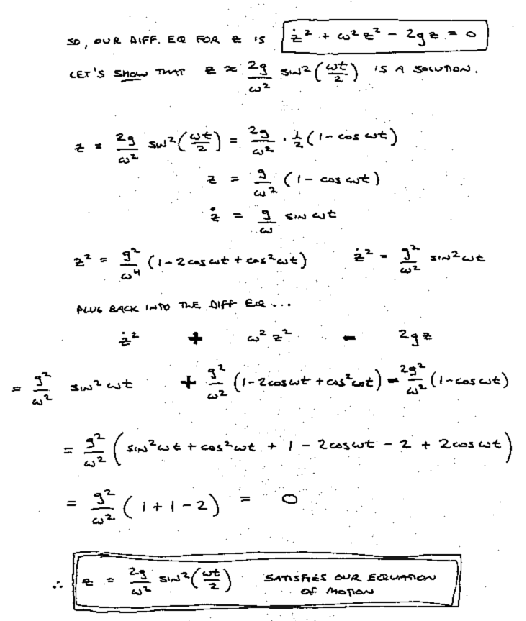 SO, OUR DIFF. EQ FOR z IS ż² + ω²z² - 2gz = 0
LET'S SHOW THAT z = 2g/ω² SIN²(ωt/2) IS A SOLUTION.
z = 2g/ω² SIN²(ωt/2) = 2g/ω² · 1/2 (1 - cos ωt)
z = g/ω² (1 - cos ωt)
ż = g/ω SIN ωt
z² = g²/ω⁴ (1 - 2cos ωt + cos² ωt) ż² = g²/ω² SIN² ωt
PLUG BACK INTO THE DIFF EQ...
ż² + ω²z² - 2gz
= g²/ω² SIN² ωt + g²/ω² (1 - 2cos ωt + cos² ωt) - 2g²/ω² (1 - cos ωt)
= g²/ω² (SIN² ωt + cos² ωt + 1 - 2cos ωt - 2 + 2cos ωt)
= g²/ω² (1 + 1 - 2) = 0
∴ z = 2g/ω² SIN²(ωt/2) SATISFIES OUR EQUATION
OF MOTION